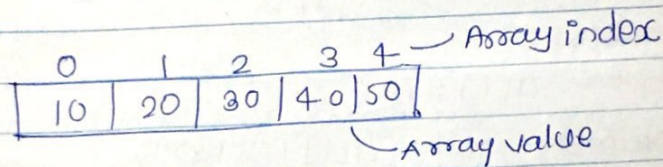 0 1 2 3 4 Array index
10 20 30 40 50
Array value